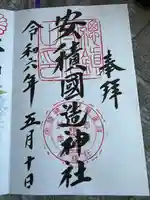 奉拝
安積國造神社
令和六年五月十日